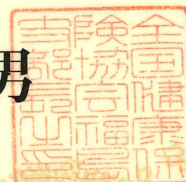 男
全国健康保
険協会福島
支部長之印